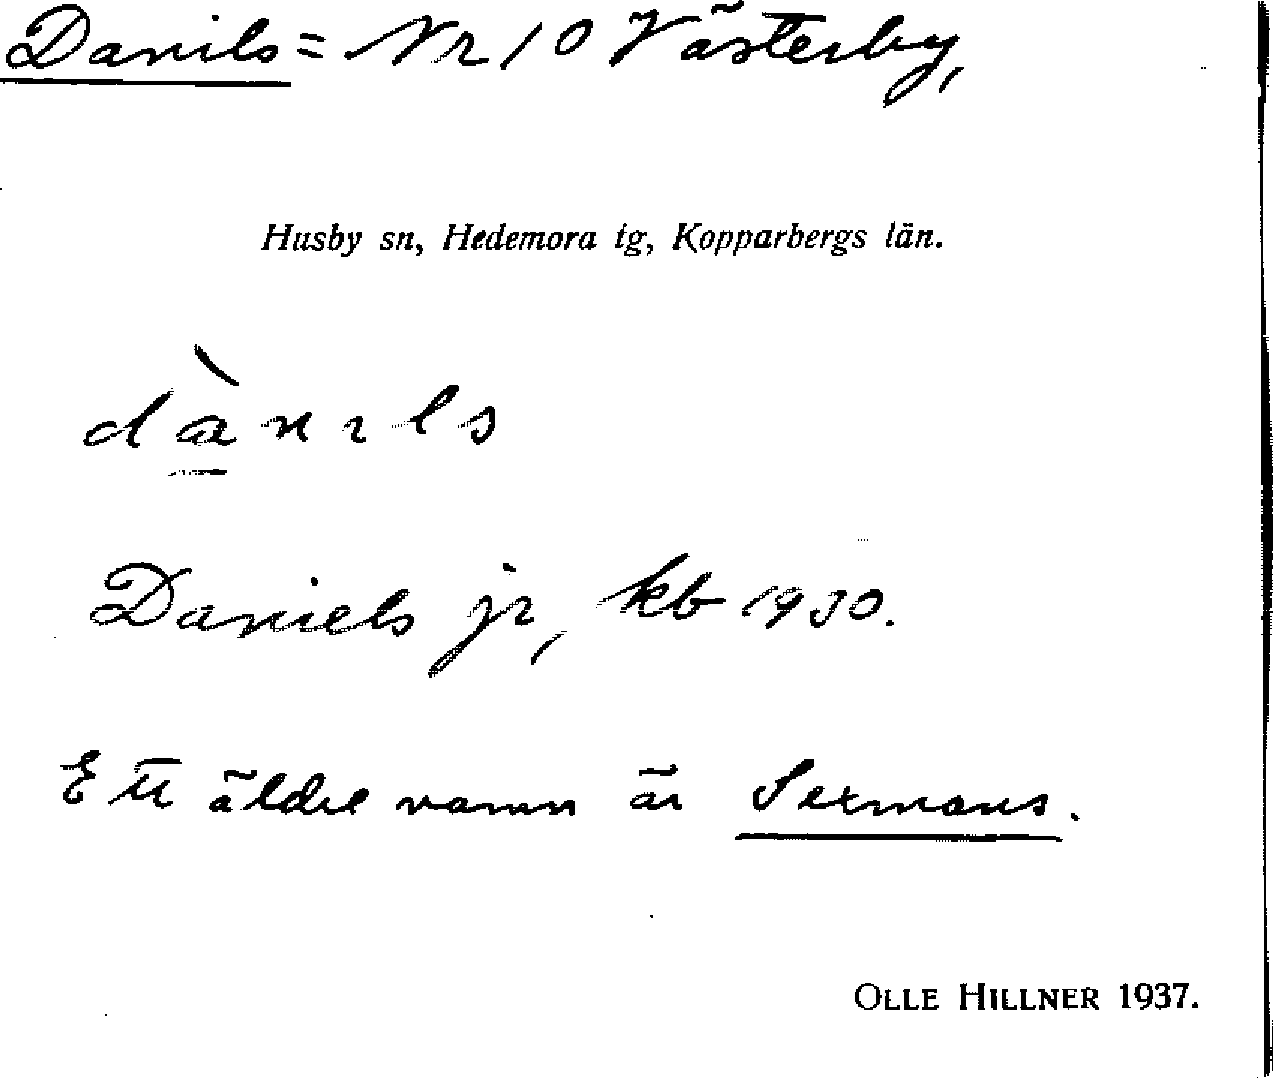 Danils = Nr 10 Västerby,
Husby sn, Hedemora tg, Kopparbergs län.
dànıls
Daniels jr, kb 1930.
Ett äldre namn är Sexmans.
OLLE HILLNER 1937.